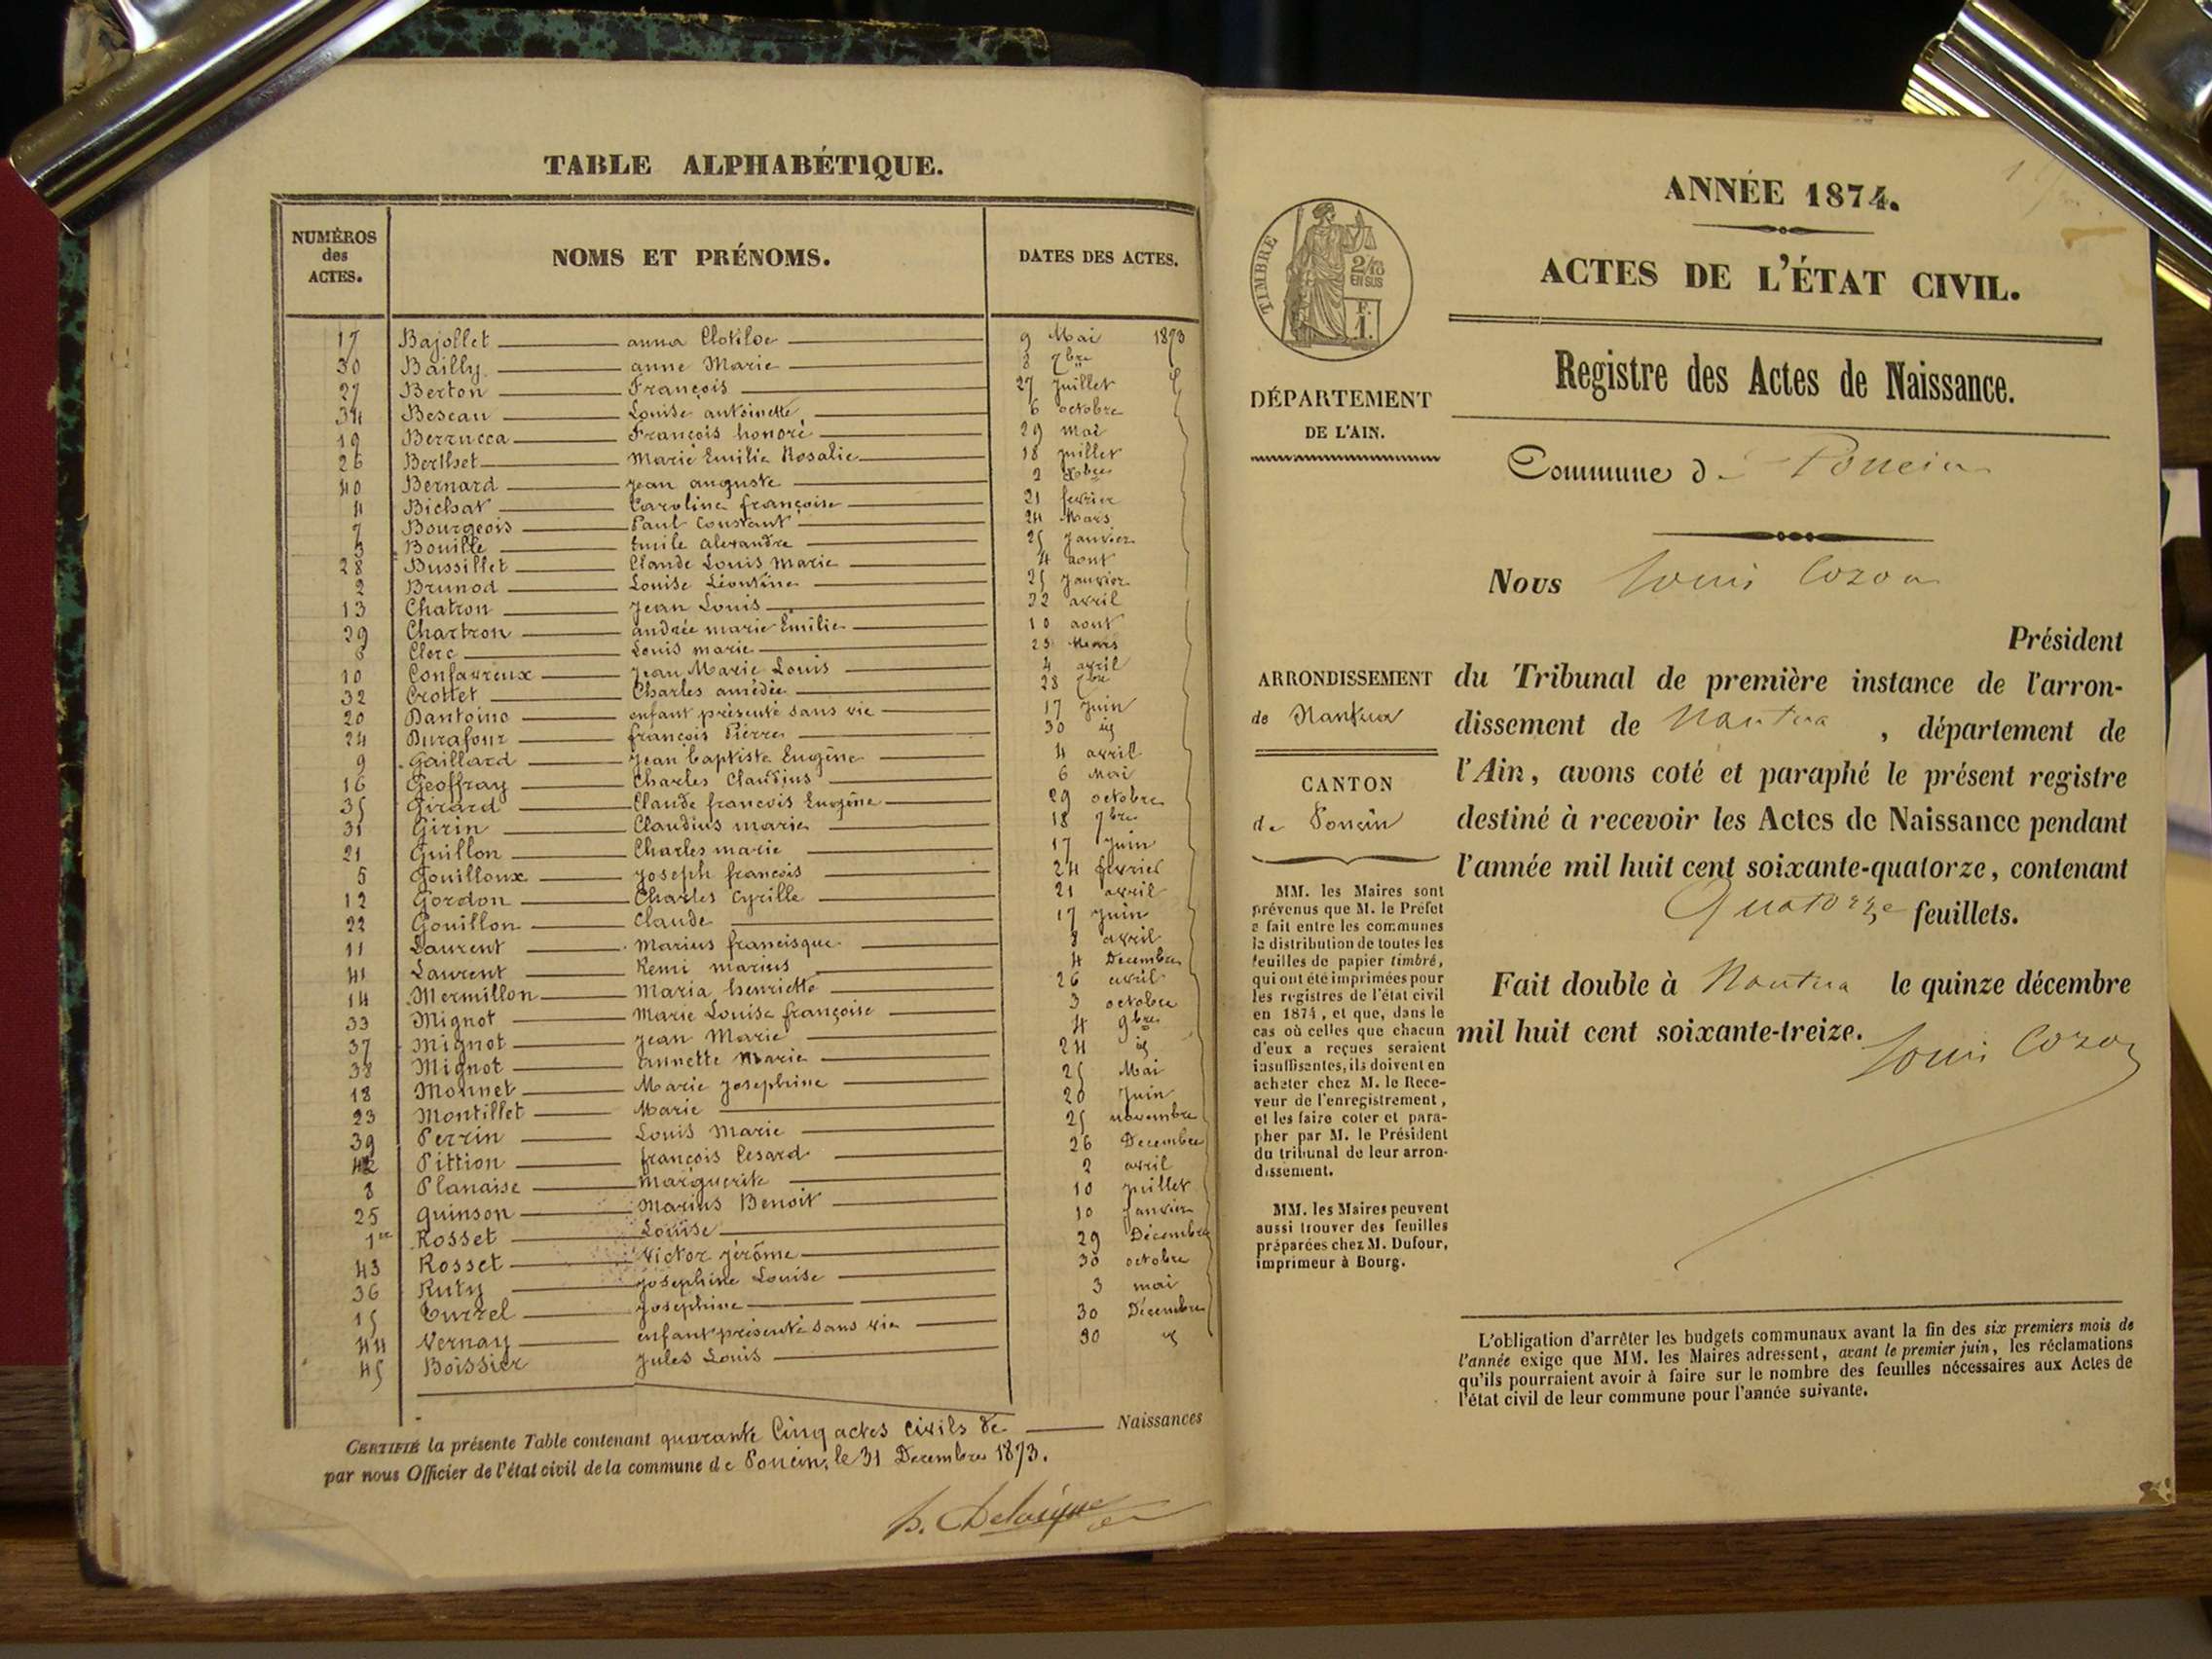 TABLE ALPHABÉTIQUE.
NUMÉROS des ACTES. NOMS ET PRÉNOMS. DATES DES ACTES.
17 Bajollet anna Clotilde 9 Mai 1873
30 Bailly anne Marie 8 7bre
27 Berton François 27 juillet
34 Bescau Louise antoinette 6 octobre
19 Berrucca François honoré 29 mai
26 Berthet Marie Emilie Rosalie 18 juillet
40 Bernard jean auguste 2 Xbre
4 Bichat Caroline françoise 21 fevrier
7 Bourgeois Paul Constant 24 Mars
3 Bouille Emile alexandre 25 janvier
28 Bussillet Claude Louis Marie 4 aout
2 Brunod Louise Léontine 25 janvier
13 Chatron jean Louis 22 avril
29 Chartron andrée marie Emilie 10 aout
8 Clerc Louis marie 25 Mars
10 Confavreux jean Marie Louis 4 avril
32 Crottet Charles amédée 28 7bre
20 Dantoine enfant présenté sans vie 17 juin
24 Durafour françois Pierre 30 id
9 Gaillard jean baptiste Eugène 4 avril
16 Geoffray Charles Claudius 6 Mai
35 Girard Claude francois Eugène 29 octobre
31 Girin Claudius marie 18 7bre
21 Guillon Charles marie 17 juin
5 Gouilloux joseph francois 24 fevrier
12 Gordon Charles Cyrille 21 avril
22 Gouillon Claude 17 juin
11 Laurent Marius francisque 8 avril
41 Laurent Remi marius 4 Decembre
14 Mermillon Maria henriette 26 avril
33 Mignot Marie Louise françoise 3 octobre
37 Mignot jean Marie 4 9bre
38 Mignot annette Marie 24 id
18 Monnet Marie josephine 25 Mai
23 Montillet Marie 20 Juin
39 Perrin Louis Marie 25 novembre
42 Pittion françois Cesard 26 Decembre
8 Planaise Marguerite 2 avril
25 Quinson Marius Benoit 10 juillet
1er Rosset Louise 10 janvier
43 Rosset Victor jérôme 29 Décembre
36 Ruty josephine Louise 30 octobre
15 Turrel Josephine 3 mai
44 Vernay enfant présenté sans vie 30 Décembre
45 Boissier jules Louis 30 id
CERTIFIÉ la présente Table contenant quarante Cinq actes civils de Naissances
par nous Officier de l'état civil de la commune de Poncin, le 31 Decembre 1873.
ANNÉE 1874.
ACTES DE L'ÉTAT CIVIL.
TIMBRE
2/10
EN SUS
F.
1.
Registre des Actes de Naissance.
DÉPARTEMENT
DE L'AIN.
Commune de Poncin
Nous Louis Cozon
Président
ARRONDISSEMENT
de Nantua
du Tribunal de première instance de l'arron-
dissement de Nantua, département de
l'Ain, avons coté et paraphé le présent registre
destiné à recevoir les Actes de Naissance pendant
l'année mil huit cent soixante-quatorze, contenant
Quatorze feuillets.
CANTON
de Poncin
MM. les Maires sont
prévenus que M. le Préfet
a fait entre les communes
la distribution de toutes les
feuilles de papier timbré,
qui ont été imprimées pour
les registres de l'état civil
en 1874, et que, dans le
cas où celles que chacun
d'eux a reçues seraient
insuffisantes, ils doivent en
acheter chez M. le Rece-
veur de l'enregistrement,
et les faire coter et para-
pher par M. le Président
du tribunal de leur arron-
dissement.
MM. les Maires peuvent
aussi trouver des feuilles
préparées chez M. Dufour,
imprimeur à Bourg.
Fait double à Nantua le quinze décembre
mil huit cent soixante-treize.
Louis Cozon
L'obligation d'arrêter les budgets communaux avant la fin des six premiers mois de
l'année exige que MM. les Maires adressent, avant le premier juin, les réclamations
qu'ils pourraient avoir à faire sur le nombre des feuilles nécessaires aux Actes de
l'état civil de leur commune pour l'année suivante.